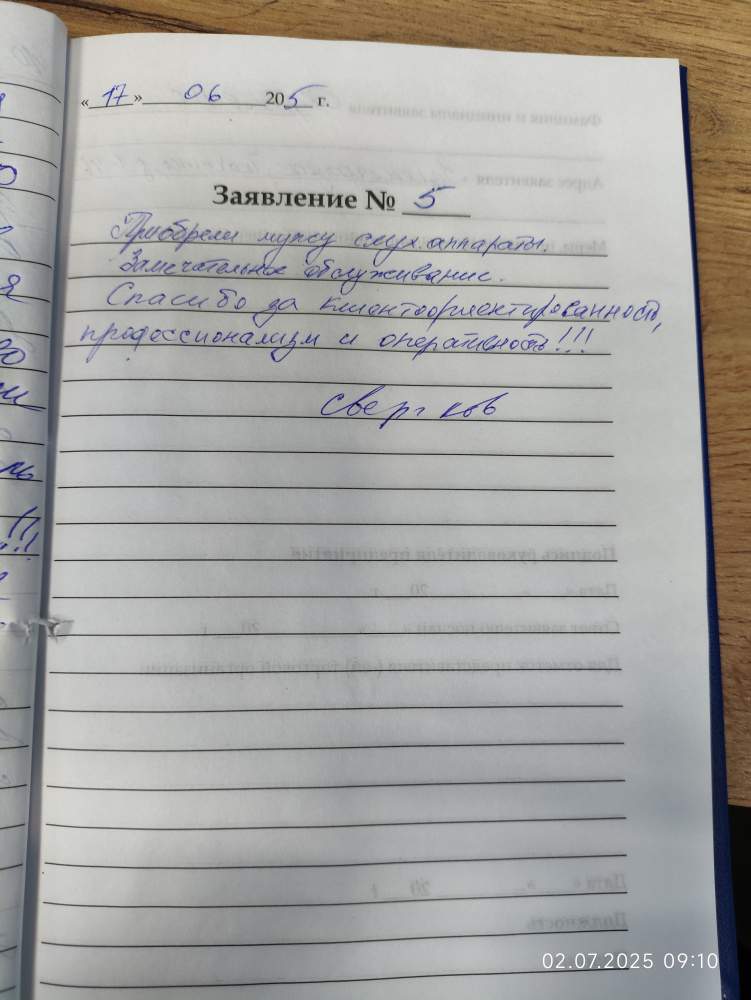 « 17 » 06 205 г.
Заявление № 5
Приобрели мужу слух. аппараты.
Замечательное обслуживание.
Спасибо за клиентоориентированность,
профессионализм и оперативность!!!
02.07.2025 09:10